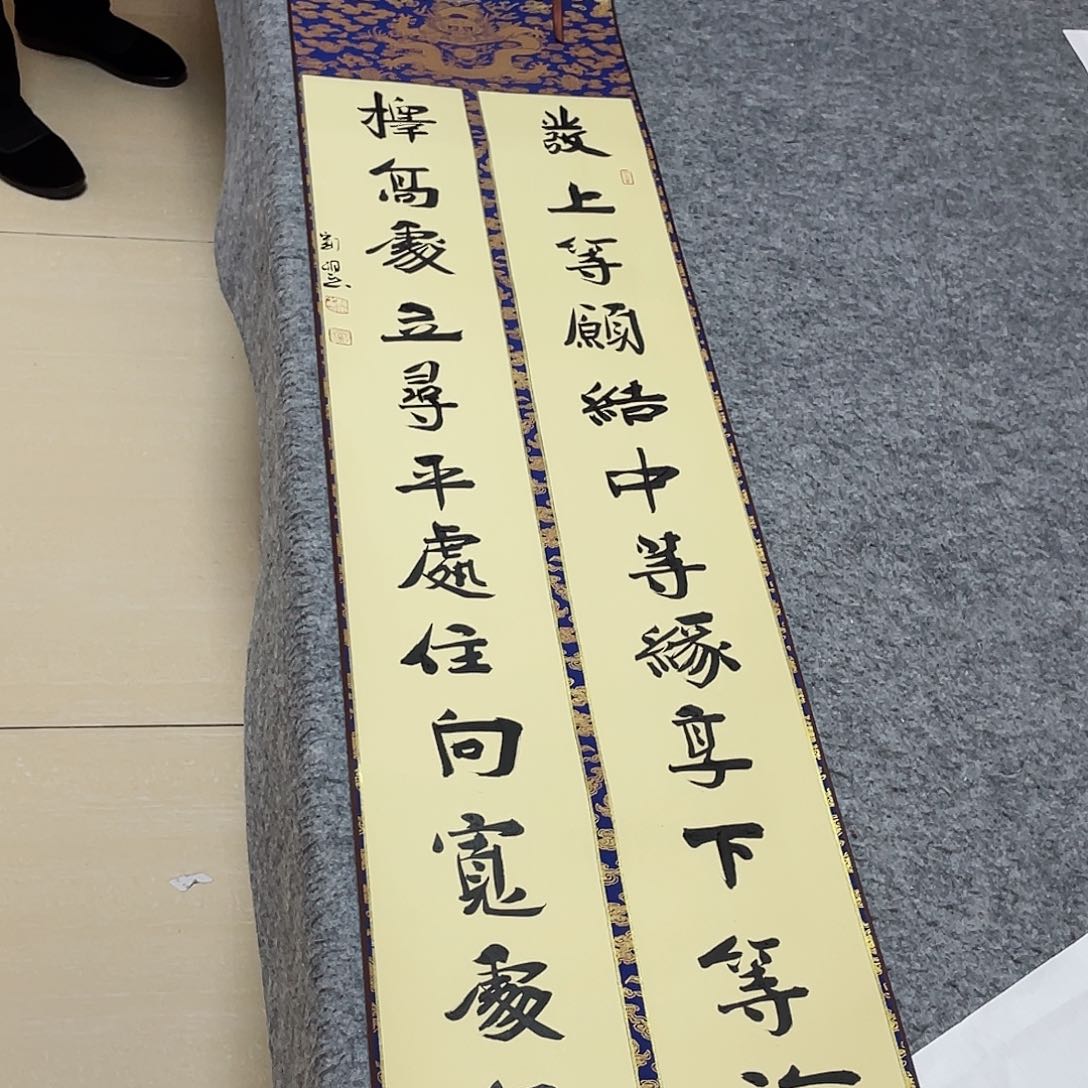 發上等願結中等緣享下等
擇高處立尋平處住向寬處